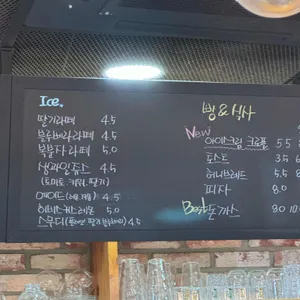 Ice.
딸기라떼 4.5
블루베리라떼 4.5
복분자라떼 5.0
생과일쥬스 4.5
(토마토, 키위, 딸기)
에이드 4.5
5.0
스무디 4.5
빵&식사
New
아이스크림 크로플 5.5
토스트 3.5 6
허니브레드 5.5 8
피자 8.0
Best 돈까스 8.0 10